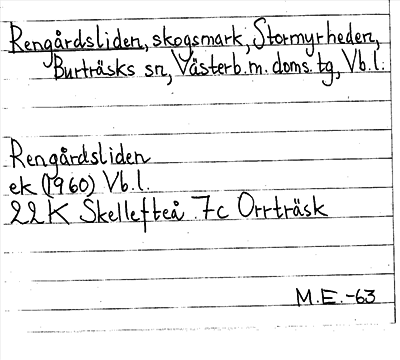 Rengårdsliden, skogsmark, Stormyrheden,
Burträsks sn, Västerb.m. doms. tg, Vb.l.
Rengårdsliden
ek (1960) Vb.l.
22K Skellefteå 7c Orrträsk
M.E.-63